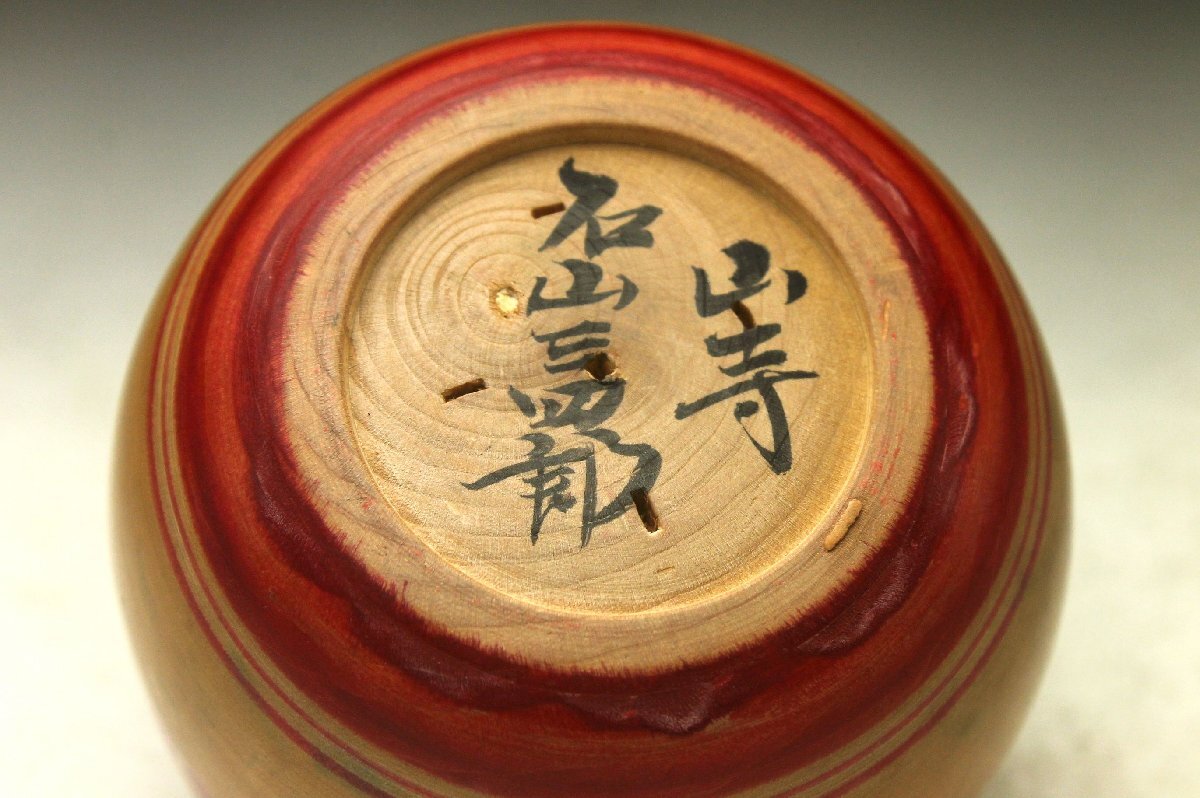 山寺
石山三四郎